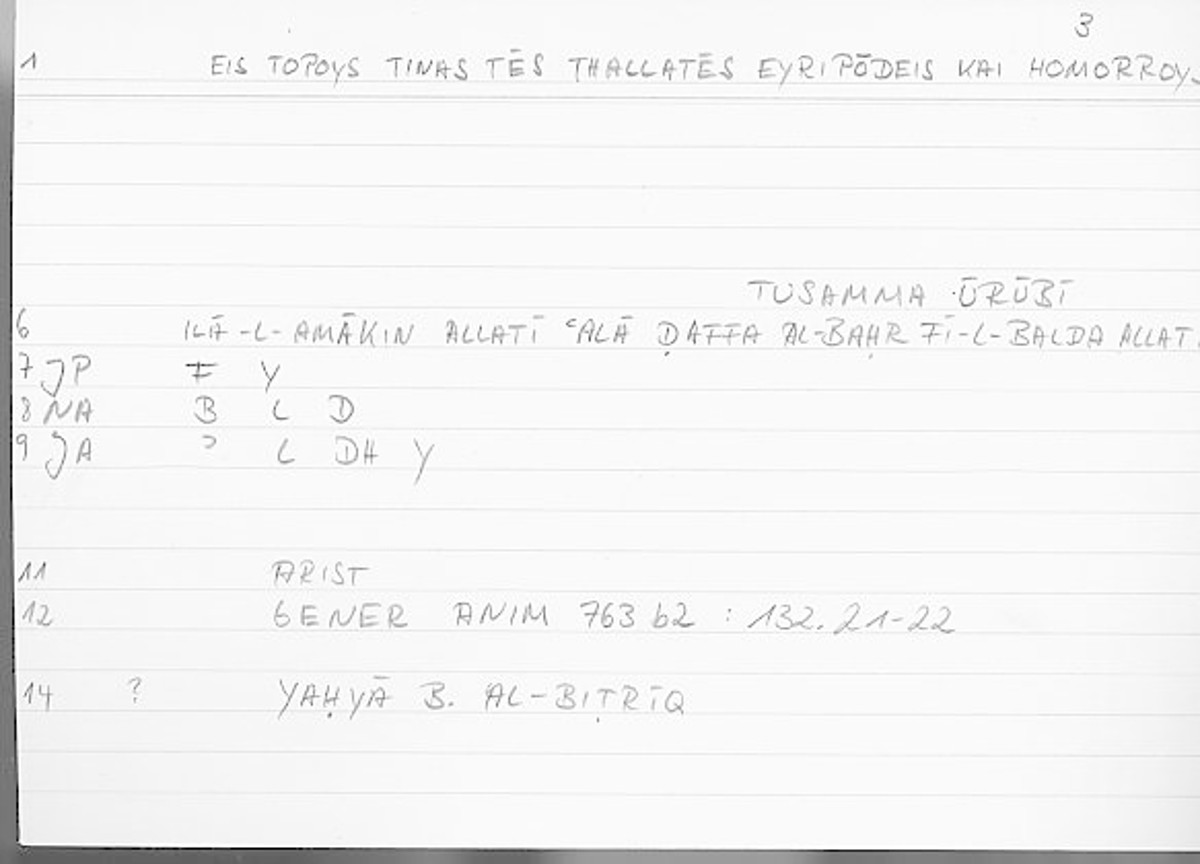 3
1 EIS TOPOYS TINAS TĒS THALLATĒS EYRIPŌDEIS KAI HOMORROYS
TUSAMMA ŪRŪBĪ
6 ILĀ-L-AMĀKIN ALLATĪ ʿALĀ ḌAFFA AL-BAḤR FĪ-L-BALDA ALLAT
7 JP F Y
8 NA B L D
9 JA ʾ L DH Y
11 ARIST
12 GENER ANIM 763 b2 : 132.21-22
14 ? YAḤYĀ B. AL-BIṬRĪQ